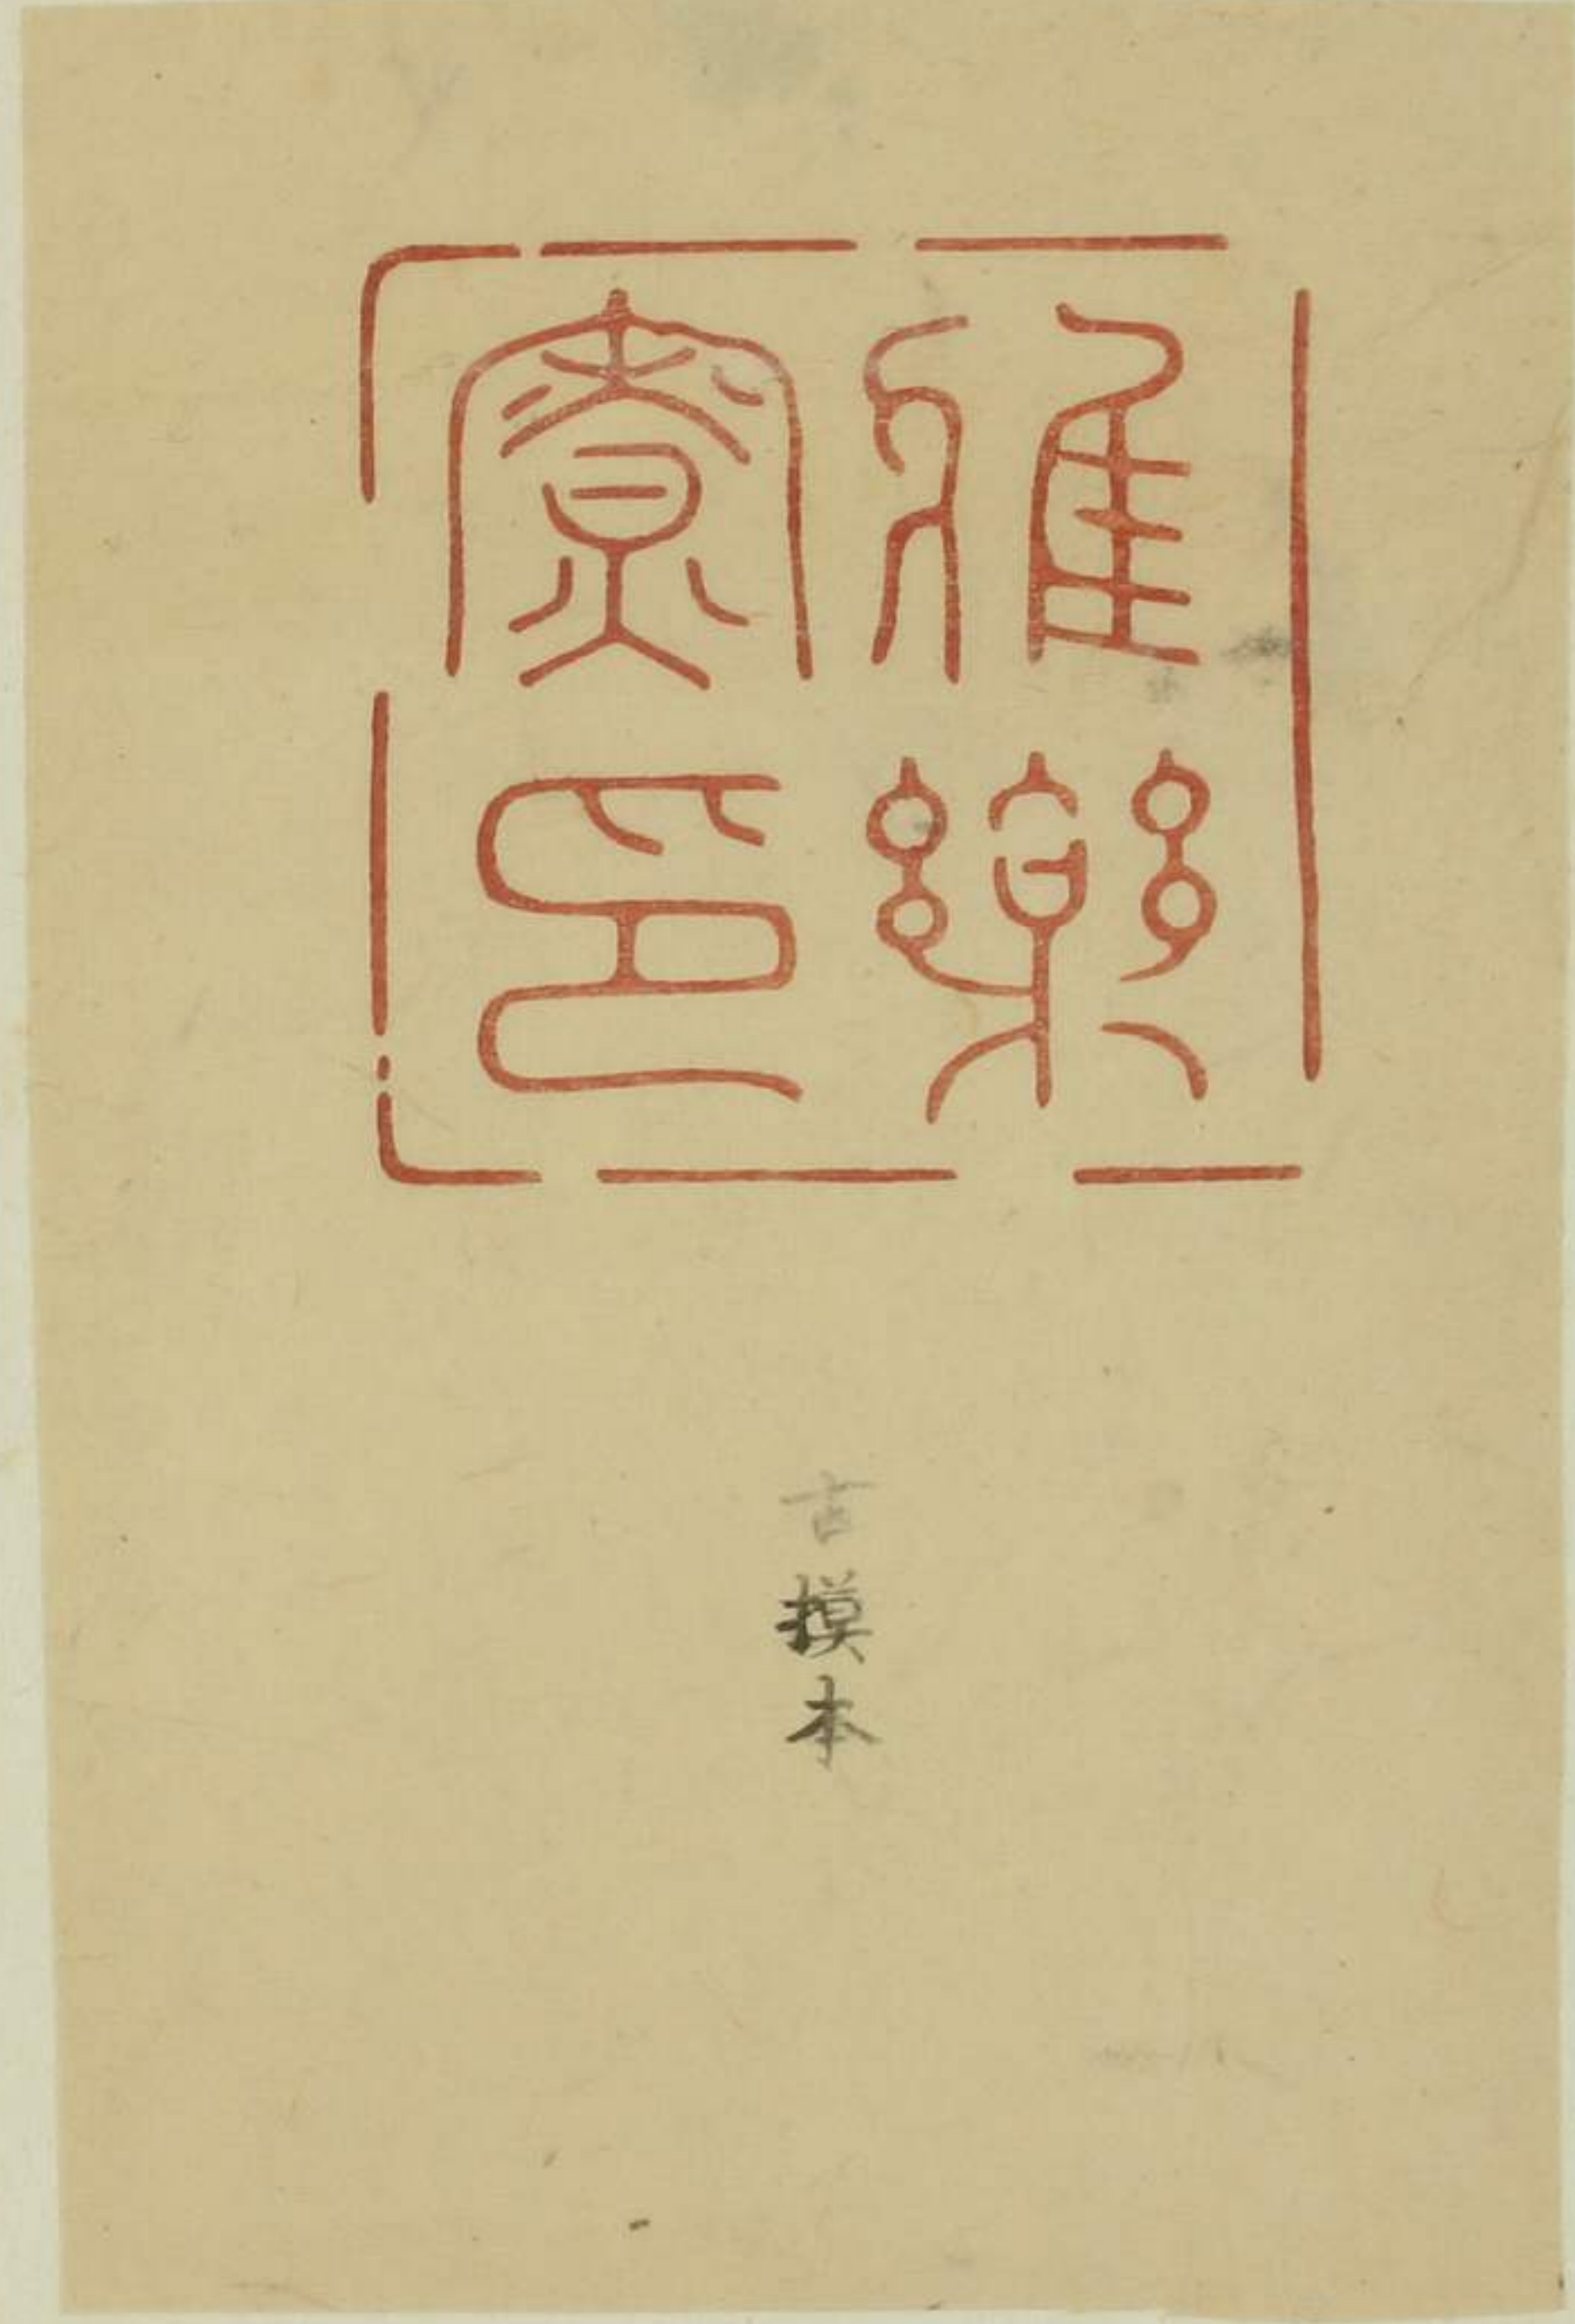 雅樂
寮印
古摸本